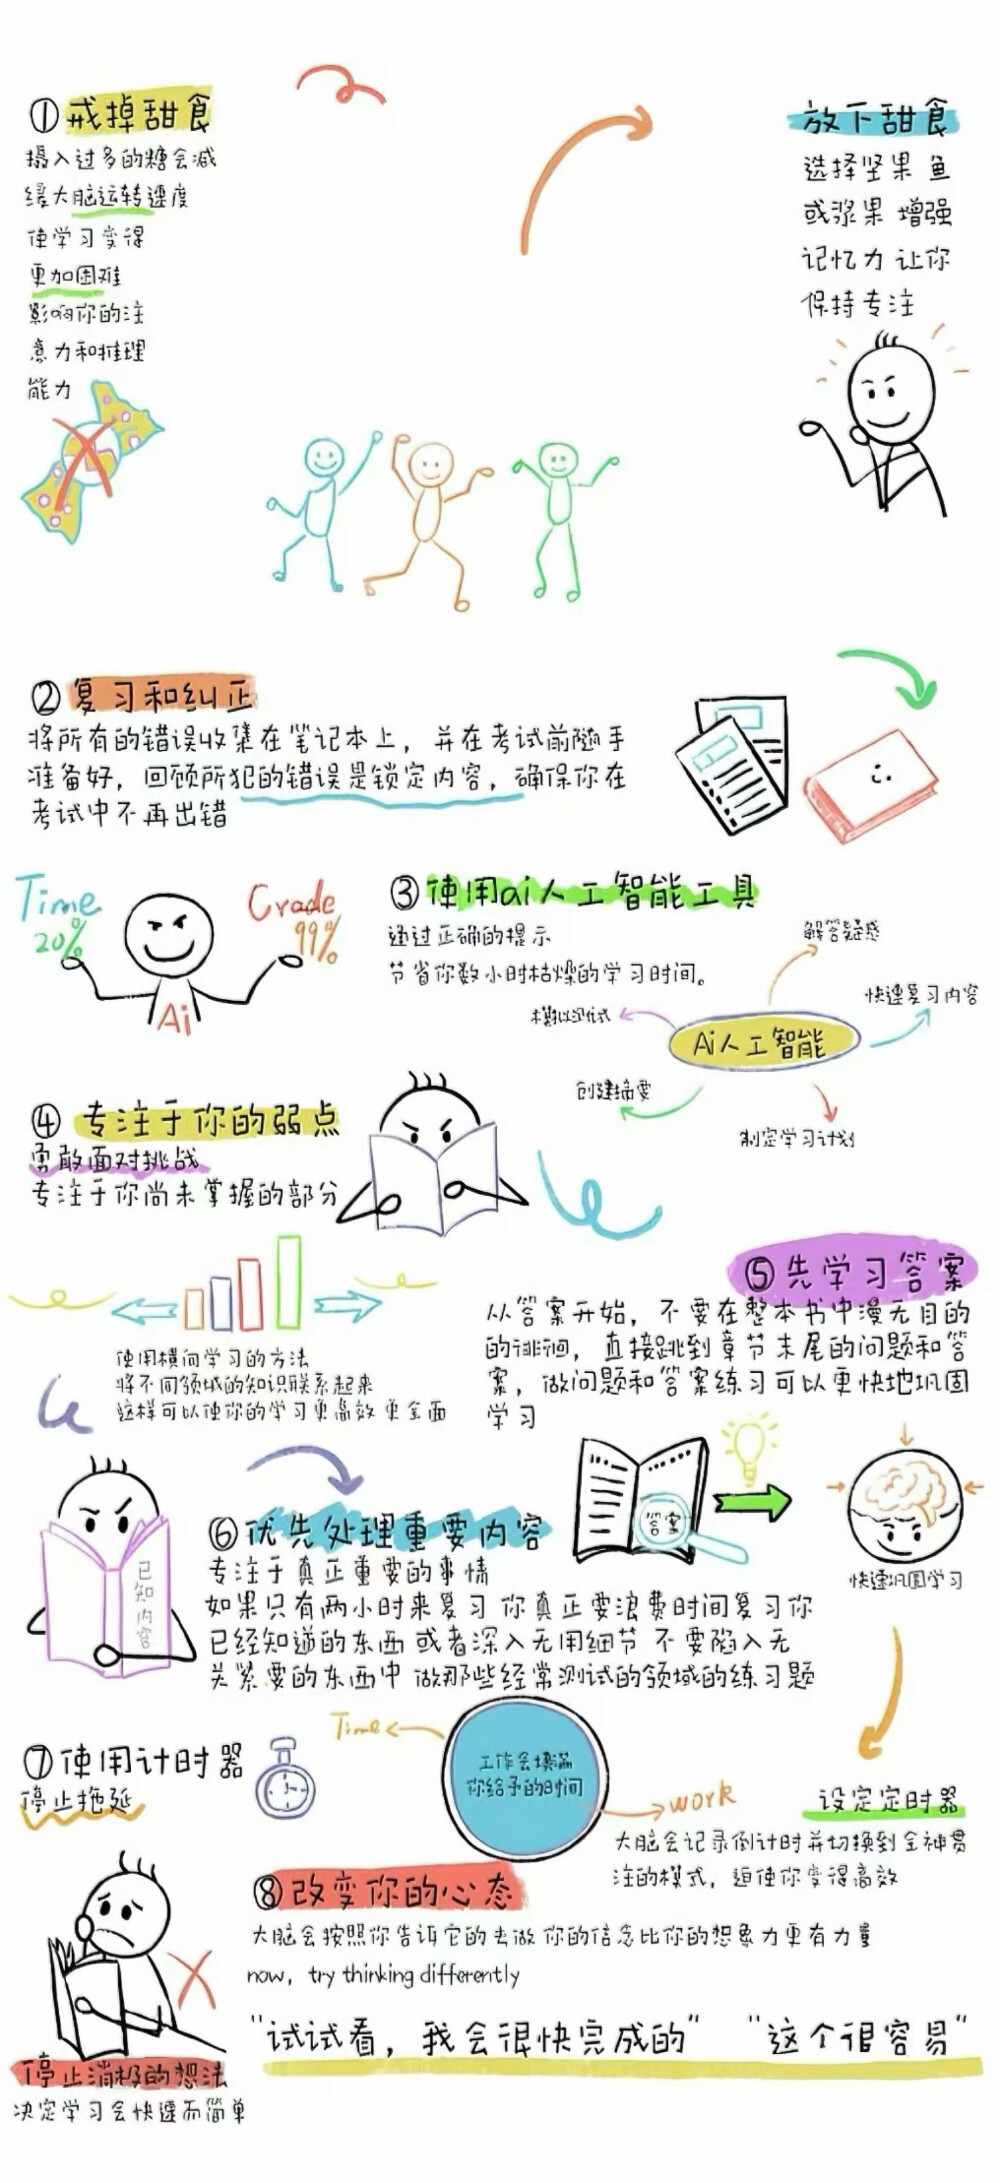 ①戒掉甜食
摄入过多的糖会减
缓大脑运转速度
使学习变得
更加困难
影响你的注
意力和推理
能力
放下甜食
选择坚果 鱼
或浆果 增强
记忆力 让你
保持专注
②复习和纠正
将所有的错误收集在笔记本上，并在考试前随手
准备好，回顾所犯的错误是锁定内容，确保你在
考试中不再出错
Time
20%
Crade
99%
Ai
③使用ai人工智能工具
通过正确的提示
节省你数小时枯燥的学习时间。
解答疑惑
快速复习内容
Ai人工智能
创建摘要
制定学习计划
④ 专注于你的弱点
勇敢面对挑战
专注于你尚未掌握的部分
使用横向学习的方法
将不同领域的知识联系起来
这样可以使你的学习更高效更全面
⑤先学习答案
从答案开始，不要在整本书中漫无目的
的徘徊，直接跳到章节末尾的问题和答
案，做问题和答案练习可以更快地巩固
学习
答案
快速巩固学习
已知内容
⑥优先处理重要内容
专注于真正重要的事情
如果只有两小时来复习 你真正要浪费时间复习你
已经知道的东西 或者深入无用细节 不要陷入无
关紧要的东西中 做那些经常测试的领域的练习题
⑦使用计时器
停止拖延
Time
工作会填满
你给予的时间
work
设定定时器
大脑会记录倒计时并切换到全神贯
注的模式，迫使你变得高效
⑧改变你的心态
大脑会按照你告诉它的去做 你的信念比你的想象力更有力量
now，try thinking differently
"试试看，我会很快完成的" "这个很容易"
停止消极的想法
决定学习会快速而简单